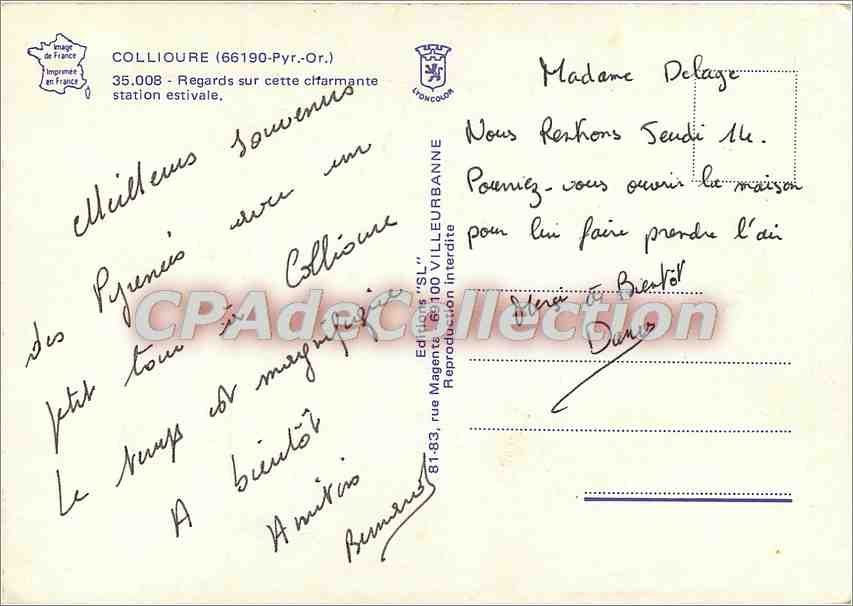 Image
de France
Imprimée
en France
COLLIOURE (66190-Pyr.-Or.)
35.008 - Regards sur cette charmante
station estivale.
LYONCOLOR
Meilleurs Souvenirs
des Pyrenées avec un
petit tour à Collioure
Le temps est magnifique
A bientôt
Amitiés
Bernard
Editions "SL"
81-83, rue Magenta - 69100 VILLEURBANNE
Reproduction interdite
Madame Delage
Nous Rentrons Jeudi 14.
Pourriez-vous ouvrir la maison
pour lui faire prendre l'air
Merci à Bientôt
CPAdeCollection